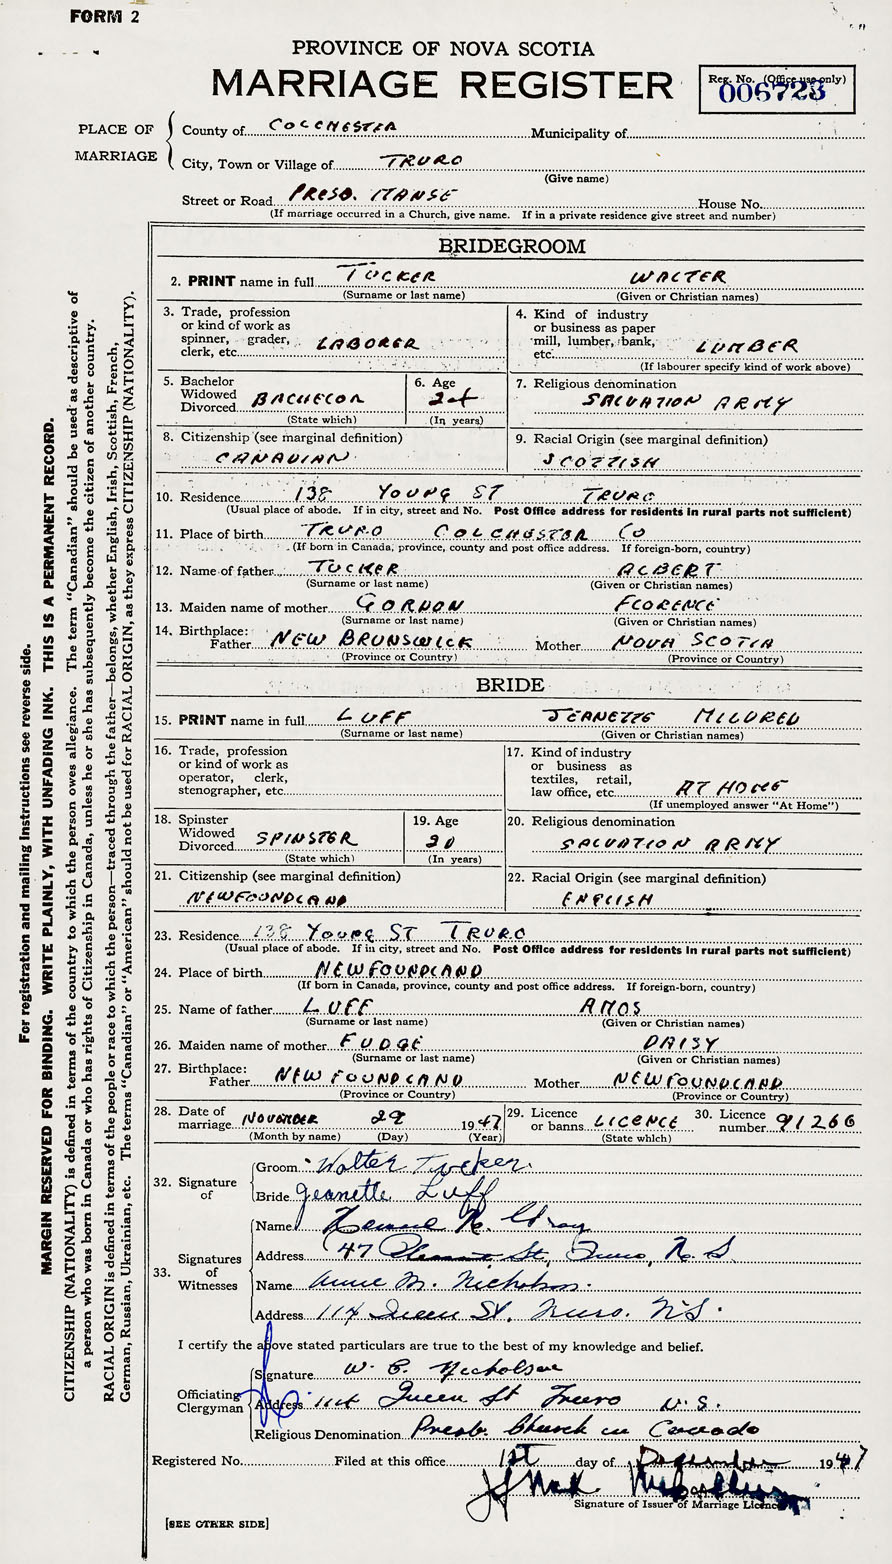 FORM 2
PROVINCE OF NOVA SCOTIA
MARRIAGE REGISTER
Reg. No. (Office use only)
006723
PLACE OF MARRIAGE
County of COLCHESTER Municipality of
City, Town or Village of TRURO
(Give name)
Street or Road PRESB. MANSE House No.
(If marriage occurred in a Church, give name. If in a private residence give street and number)
BRIDEGROOM
2. PRINT name in full TUCKER WALTER
(Surname or last name) (Given or Christian names)
3. Trade, profession
or kind of work as
spinner, grader,
clerk, etc. LABORER
4. Kind of industry
or business as paper
mill, lumber, bank,
etc. LUMBER
(If labourer specify kind of work above)
5. Bachelor
Widowed
Divorced BACHELOR
(State which)
6. Age
24
(In years)
7. Religious denomination
SALVATION ARMY
8. Citizenship (see marginal definition)
CANADIAN
9. Racial Origin (see marginal definition)
SCOTTISH
10. Residence 138 YOUNG ST TRURO
(Usual place of abode. If in city, street and No. Post Office address for residents in rural parts not sufficient)
11. Place of birth TRURO COLCHESTER CO
(If born in Canada, province, county and post office address. If foreign-born, country)
12. Name of father TUCKER ALBERT
(Surname or last name) (Given or Christian names)
13. Maiden name of mother GORDON FLORENCE
(Surname or last name) (Given or Christian names)
14. Birthplace:
Father NEW BRUNSWICK Mother NOVA SCOTIA
(Province or Country) (Province or Country)
BRIDE
15. PRINT name in full LUFF JEANETTE MILDRED
(Surname or last name) (Given or Christian names)
16. Trade, profession
or kind of work as
operator, clerk,
stenographer, etc.
17. Kind of industry
or business as
textiles, retail,
law office, etc. AT HOME
(If unemployed answer "At Home")
18. Spinster
Widowed
Divorced SPINSTER
(State which)
19. Age
20
(In years)
20. Religious denomination
SALVATION ARMY
21. Citizenship (see marginal definition)
NEWFOUNDLAND
22. Racial Origin (see marginal definition)
ENGLISH
23. Residence 138 YOUNG ST TRURO
(Usual place of abode. If in city, street and No. Post Office address for residents in rural parts not sufficient)
24. Place of birth NEWFOUNDLAND
(If born in Canada, province, county and post office address. If foreign-born, country)
25. Name of father LUFF AMOS
(Surname or last name) (Given or Christian names)
26. Maiden name of mother FUDGE DAISY
(Surname or last name) (Given or Christian names)
27. Birthplace:
Father NEWFOUNDLAND Mother NEWFOUNDLAND
(Province or Country) (Province or Country)
28. Date of
marriage NOVEMBER 29 1947
(Month by name) (Day) (Year)
29. Licence
or banns LICENCE
(State which)
30. Licence
number 91266
32. Signature of
Groom Walter Tucker
Bride Jeanette Luff
33. Signatures of Witnesses
Name
Address 47 St, Truro, N.S.
Name Annie M. Nicholson
Address 114 Queen St. Truro. N.S.
I certify the above stated particulars are true to the best of my knowledge and belief.
Officiating Clergyman
Signature W. C. Nicholson
Address 114 Queen St Truro N.S.
Religious Denomination Presb. Church in Canada
Registered No. Filed at this office 1st day of December 1947
Signature of Issuer of Marriage Licence
[SEE OTHER SIDE]
For registration and mailing instructions see reverse side.
MARGIN RESERVED FOR BINDING. WRITE PLAINLY, WITH UNFADING INK. THIS IS A PERMANENT RECORD.
CITIZENSHIP (NATIONALITY) is defined in terms of the country to which the person owes allegiance. The term "Canadian" should be used as descriptive of
a person who was born in Canada or who has rights of Citizenship in Canada, unless he or she has subsequently become the citizen of another country.
RACIAL ORIGIN is defined in terms of the people or race to which the person—traced through the father—belongs, whether English, Irish, Scottish, French,
German, Russian, Ukrainian, etc. The terms "Canadian" or "American" should not be used for RACIAL ORIGIN, as they express CITIZENSHIP (NATIONALITY).